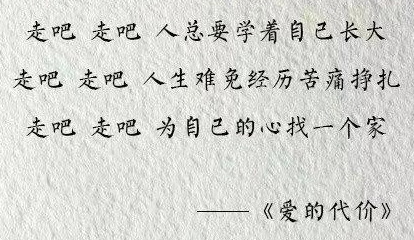 走吧 走吧 人总要学着自己长大
走吧 走吧 人生难免经历苦痛挣扎
走吧 走吧 为自己的心找一个家
——《爱的代价》